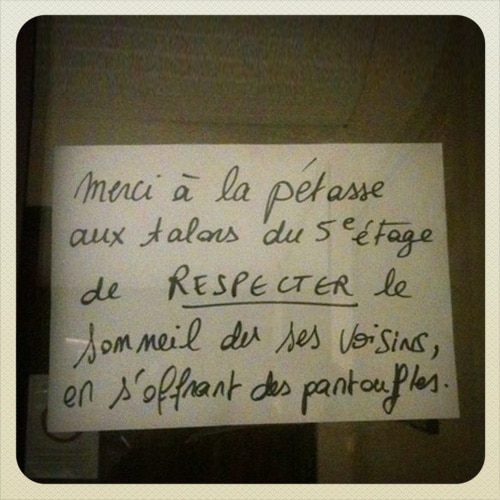 Merci à la pétasse
aux talons du 5e étage
de RESPECTER le
sommeil de ses voisins,
en s'offrant des pantoufles.